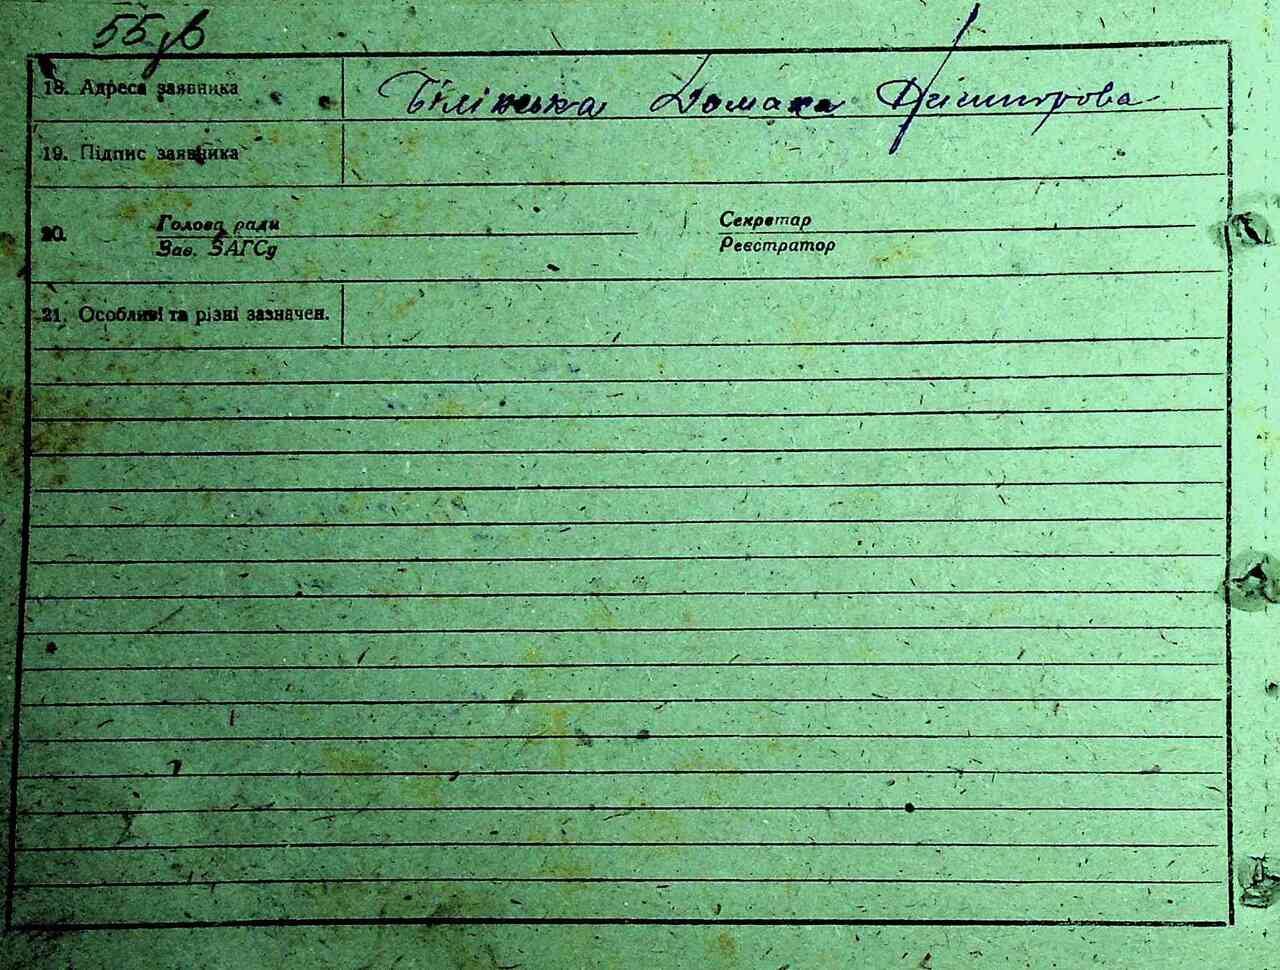 55зв
18. Адреса заявника Білінська Домаха Никифорова
19. Підпис заявника
20. Голова ради Секретар
Зав. ЗАГСу Реєстратор
21. Особливі та різні зазначен.